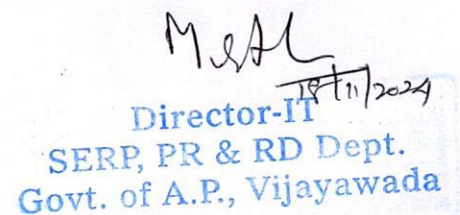 18/11/2024
Director-IT
SERP, PR & RD Dept.
Govt. of A.P., Vijayawada